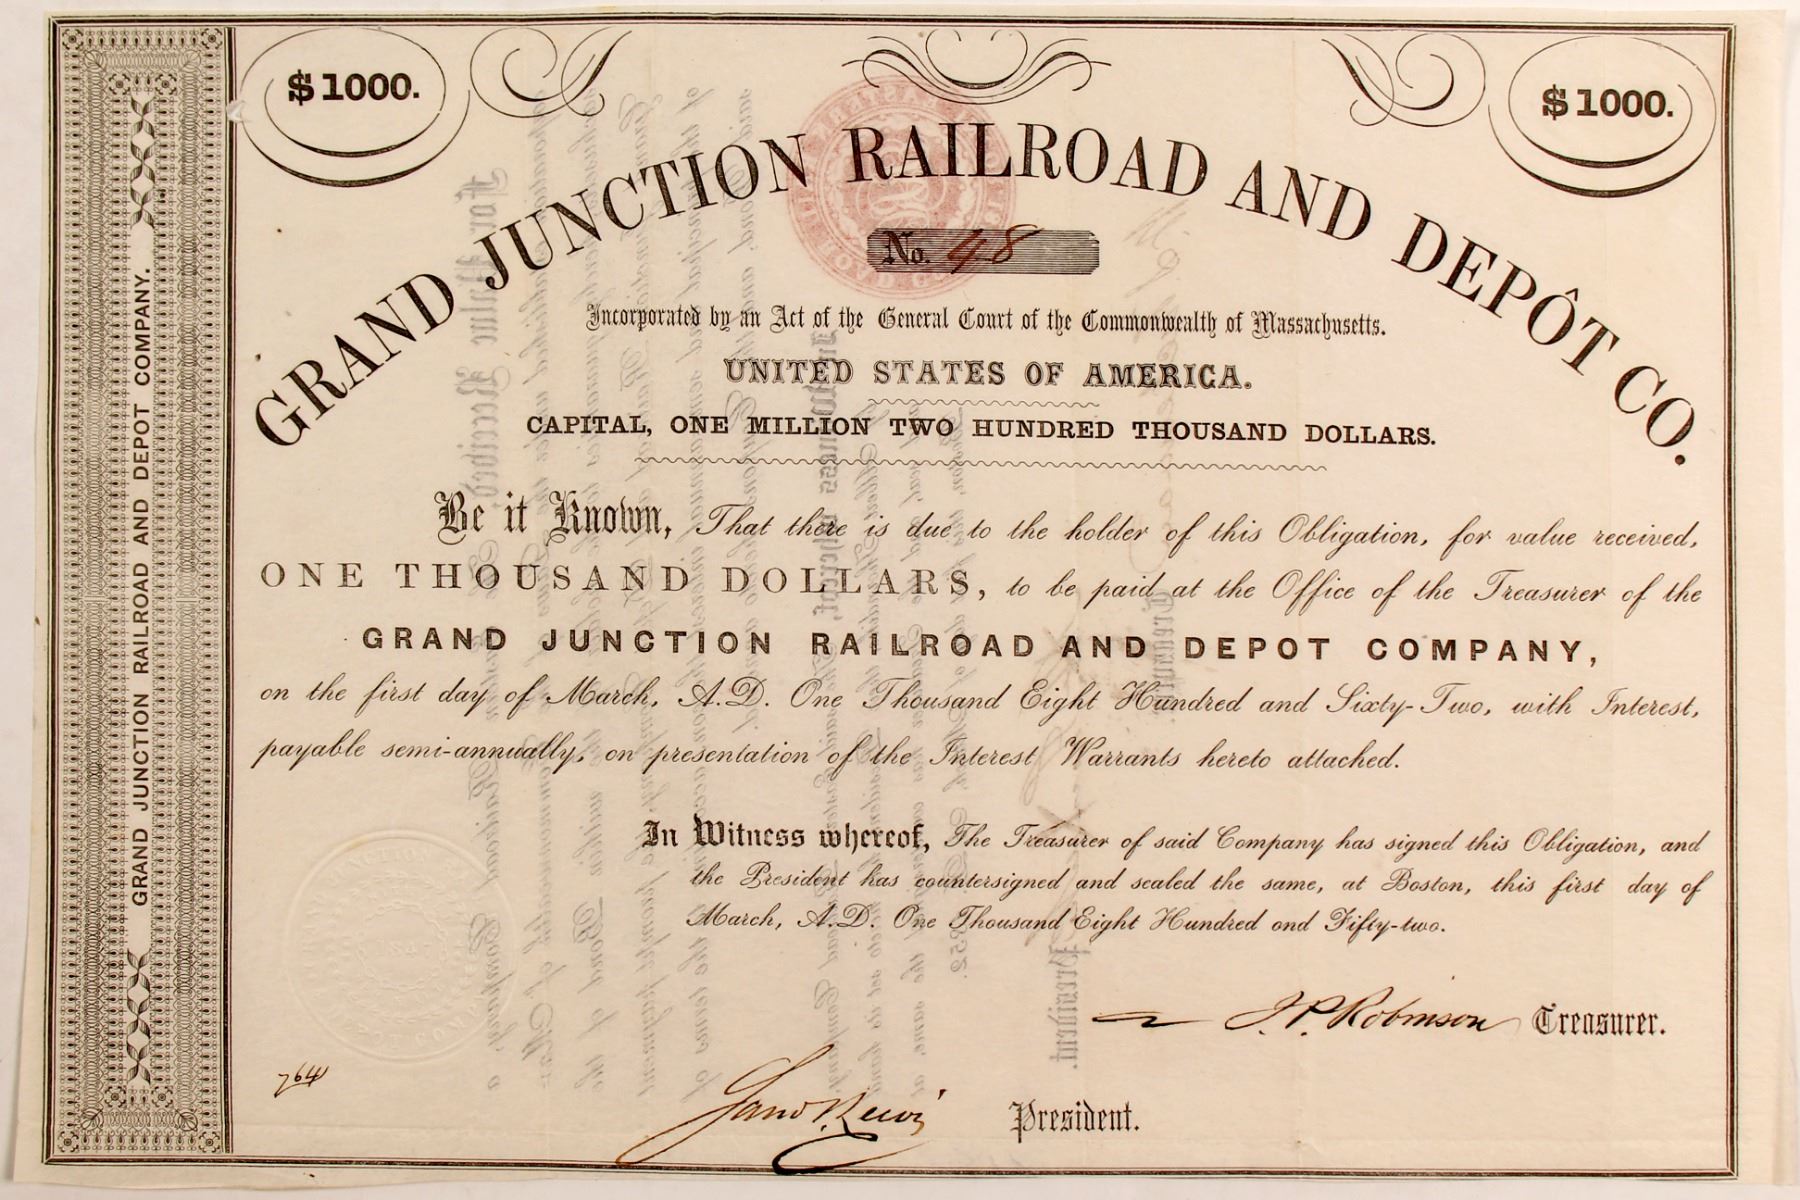 $1000.
$1000.
GRAND JUNCTION RAILROAD AND DEPÔT CO.
No. 48
Incorporated by an Act of the General Court of the Commonwealth of Massachusetts.
UNITED STATES OF AMERICA.
CAPITAL, ONE MILLION TWO HUNDRED THOUSAND DOLLARS.
Be it Known, That there is due to the holder of this Obligation, for value received,
ONE THOUSAND DOLLARS, to be paid at the Office of the Treasurer of the
GRAND JUNCTION RAILROAD AND DEPOT COMPANY,
on the first day of March, A.D. One Thousand Eight Hundred and Sixty-Two, with Interest,
payable semi-annually, on presentation of the Interest Warrants hereto attached.
In Witness whereof, The Treasurer of said Company has signed this Obligation, and
the President has countersigned and sealed the same, at Boston, this first day of
March, A.D. One Thousand Eight Hundred and Fifty-two.
J. P. Robinson Treasurer.
764
President.
GRAND JUNCTION RAILROAD AND DEPOT COMPANY.